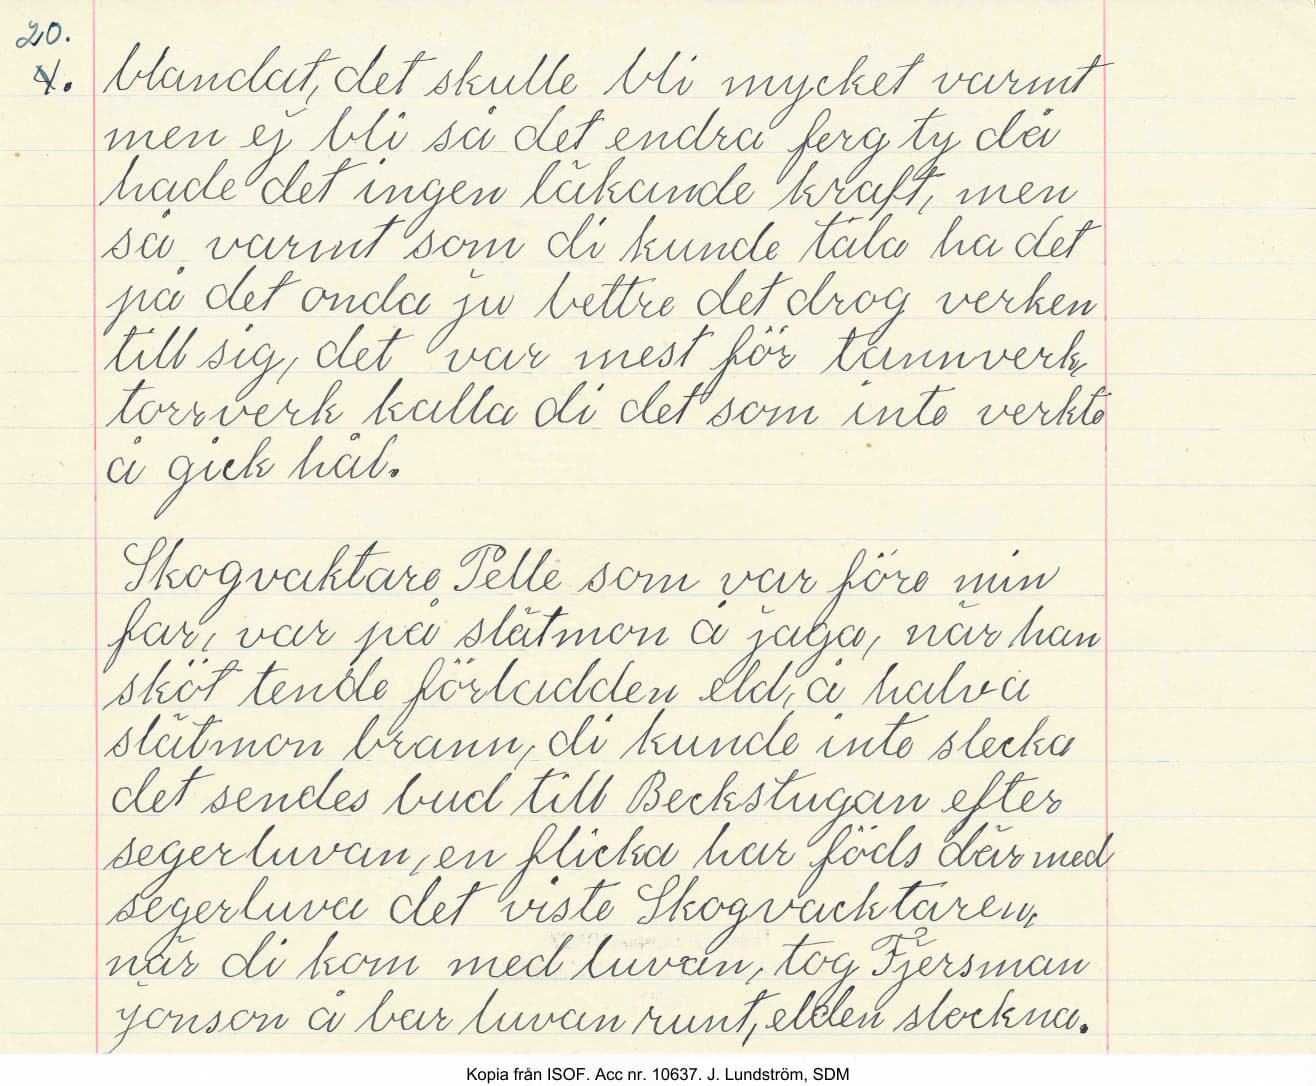 20.
4.
blandat, det skulle bli mycket varmt
men ej bli så det endra ferg ty då
hade det ingen läkande kraft, men
så varmt som di kunde tåla ha det
på det onda ju bettre det drog verken
till sig, det var mest för tannverk,
torrverk kalla di det som inte verkte
å gick hål.
Skogvaktare Pelle som var före min
far, var på slåtmon å jaga, när han
sköt tende förladden eld, å halva
slåtmon brann, di kunde inte slecka
det sendes bud till Beckstugan efter
segerluvan, en flicka har föds där med
segerluva det viste Skogvacktaren,
när di kom med luvan, tog Fjersman
jonson å bar luvan runt, elden slockna.
Kopia från ISOF. Acc nr. 10637. J. Lundström, SDM